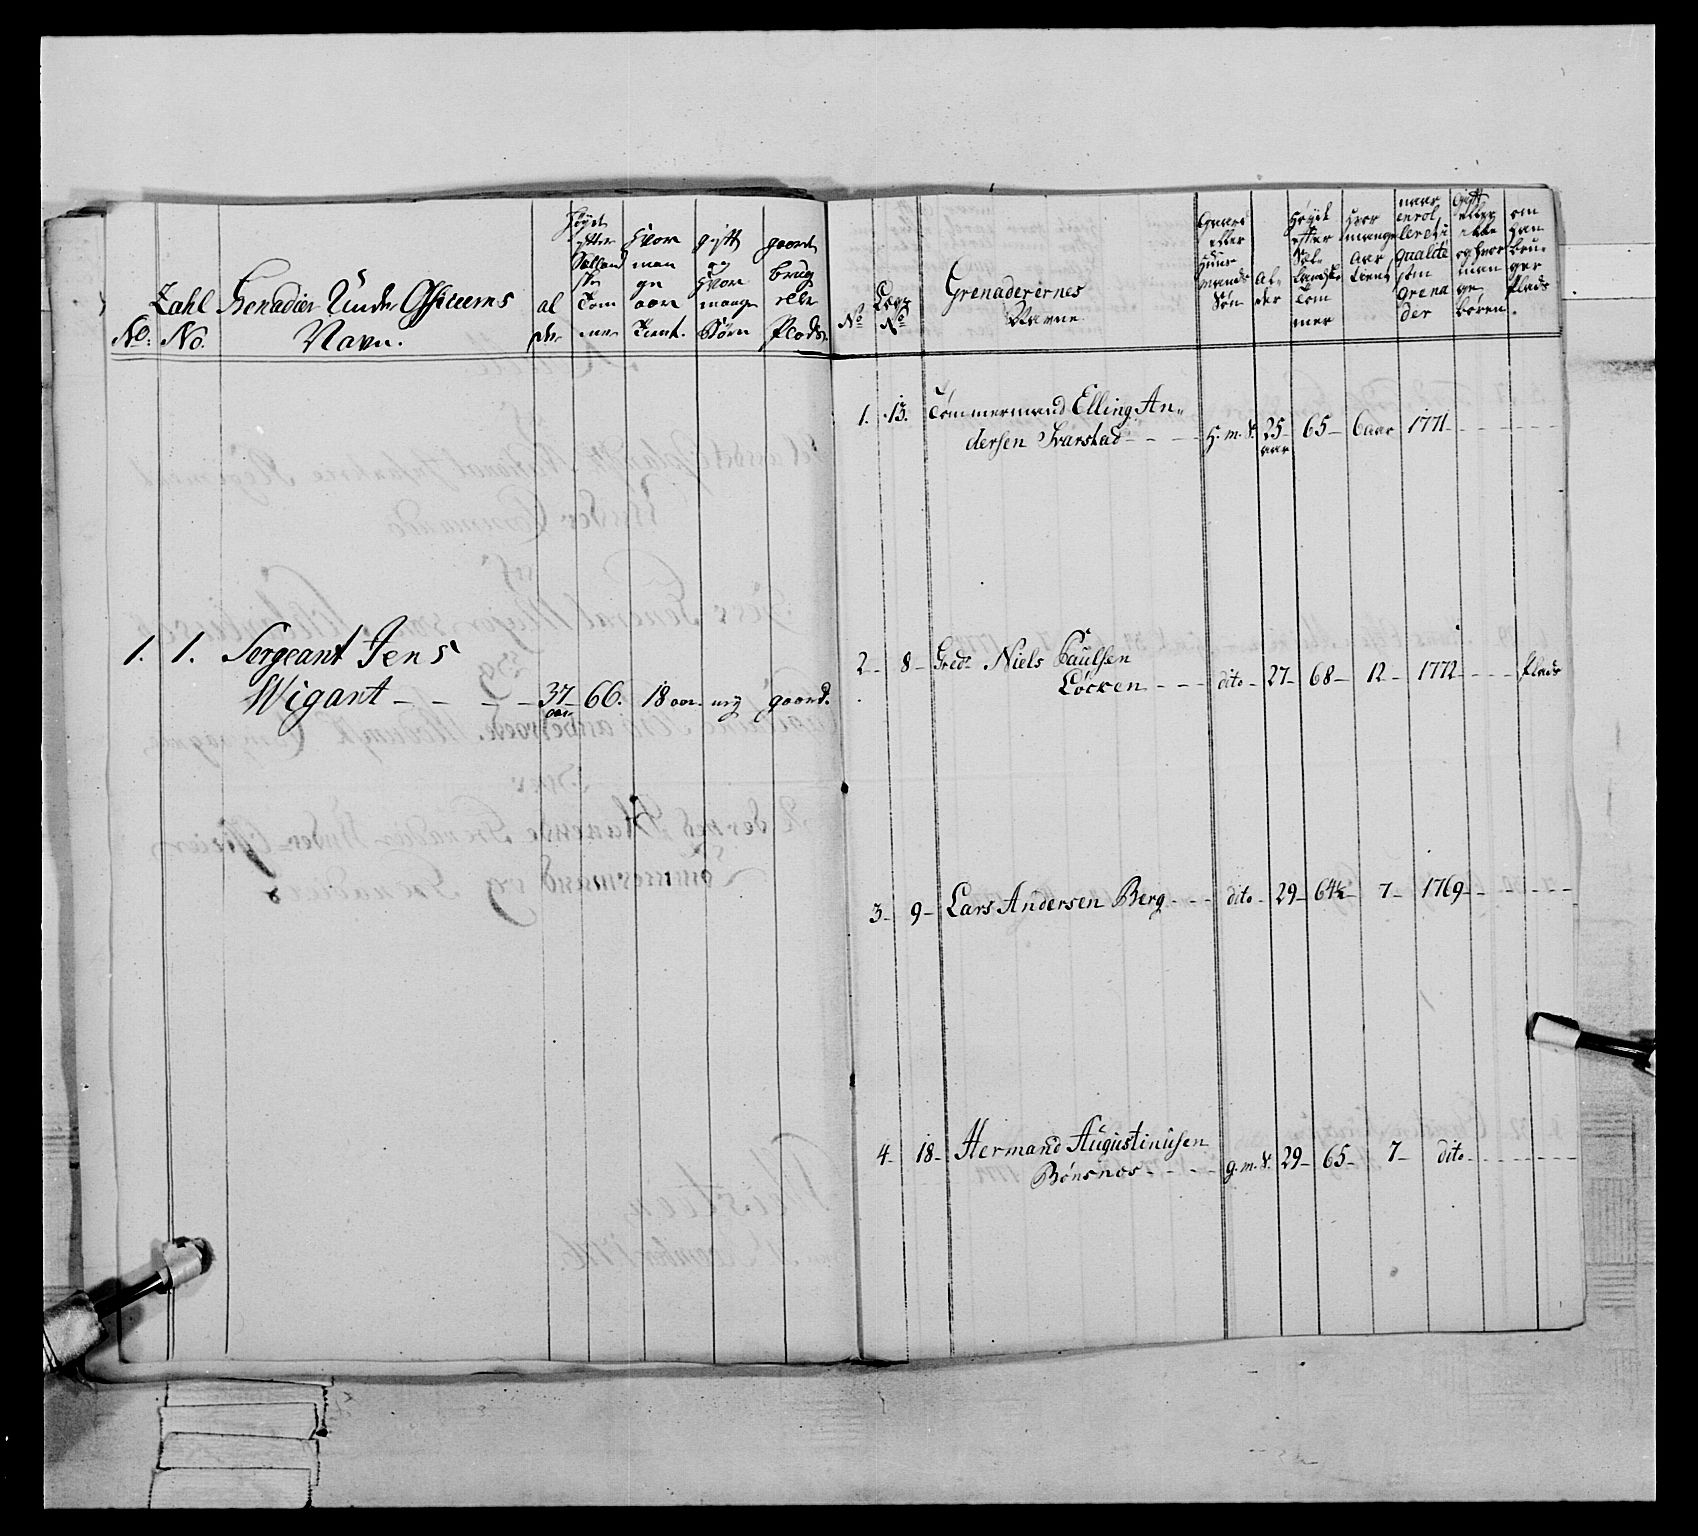 No:
Zahl
No.
Grenadier Under Officeerns
Navn.
al
der
Høyde
efter
Sælland
ske
Tom
mer
Hvor
man
ge
aar
Tient.
gift
og
Hvor
mange
Børn
gaard
brug
eller
Plads.
1. 1. Sergeant Jens
Wigant - - - - 37 66. 18 aar. nej gaard.
aar
No
No
Grenaderernes
Navne
Gaard
eller
Huus
mands
Søn
al-
der
Høyde
efter
Sæl-
landske
Tom
mer
Hvor
mange
Aar
tient
naar
enrol
leret i
qualité
som
Grena
der
Gift
eller
ikke
og hvor
man
ge
børen.
om
han
bru-
ger
Plads.
1. 13. Tømmermand Elling An-
dersen Svarstad - - - H. m. S. 25 65 - 6 aar 1771 - - - -
aar
2 - 8 - Gredr Niels Paulsen
Løcken - - - dito - 27 - 68 - 12 - 1772 - - - Plads
3 - 9 - Lars Andersen Berg - - - dito - 29 - 64½ - 7 - 1769 - - - - -
4 - 18 - Hermand Augustinusen
Bönsnos - - - - g. m. S. 29 - 65 - 7 - dito - - - - -